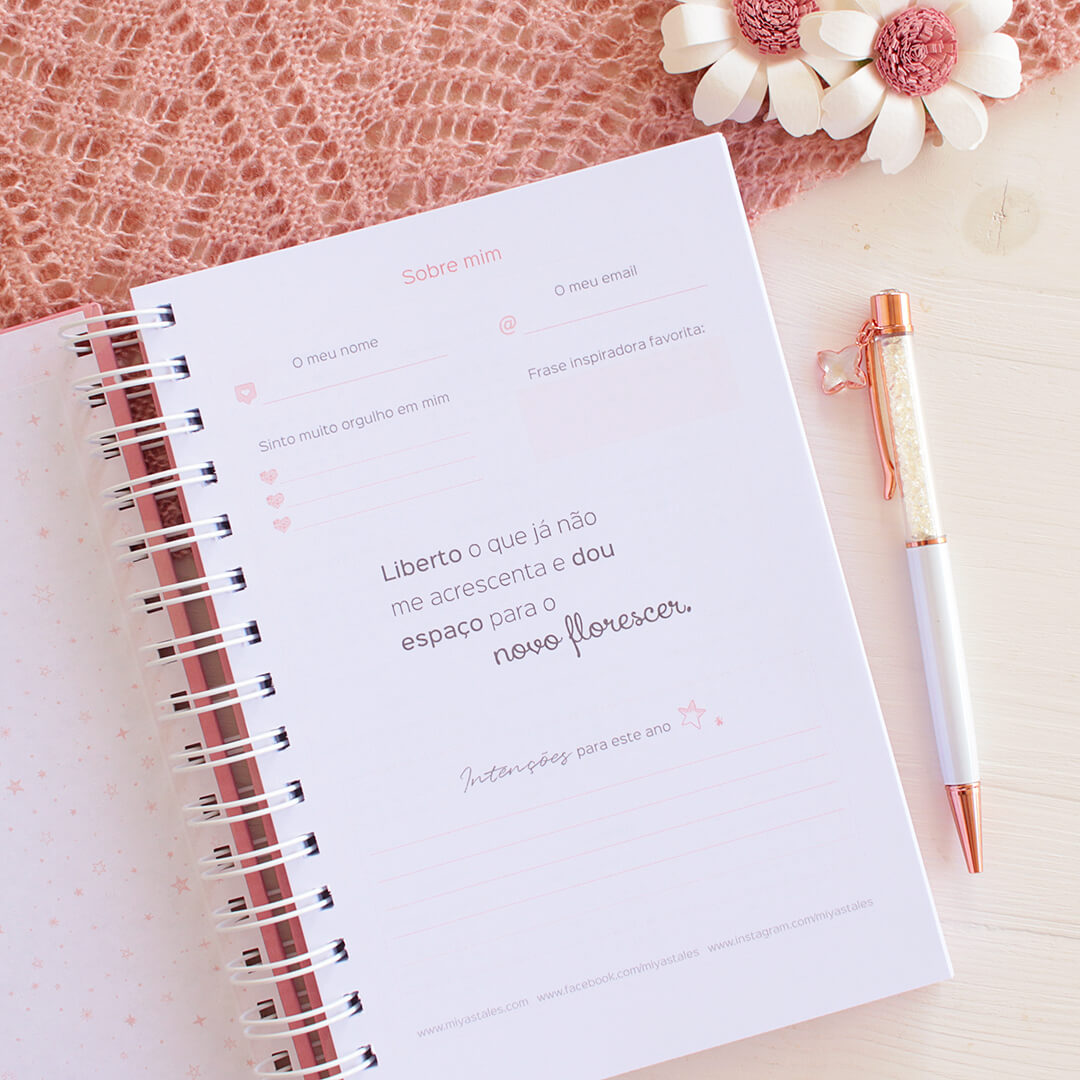 Sobre mim
O meu nome
O meu email
@
Sinto muito orgulho em mim
Frase inspiradora favorita:
Liberto o que já não
me acrescenta e dou
espaço para o
novo florescer.
Intenções para este ano
www.miyastales.com www.facebook.com/miyastales www.instagram.com/miyastales